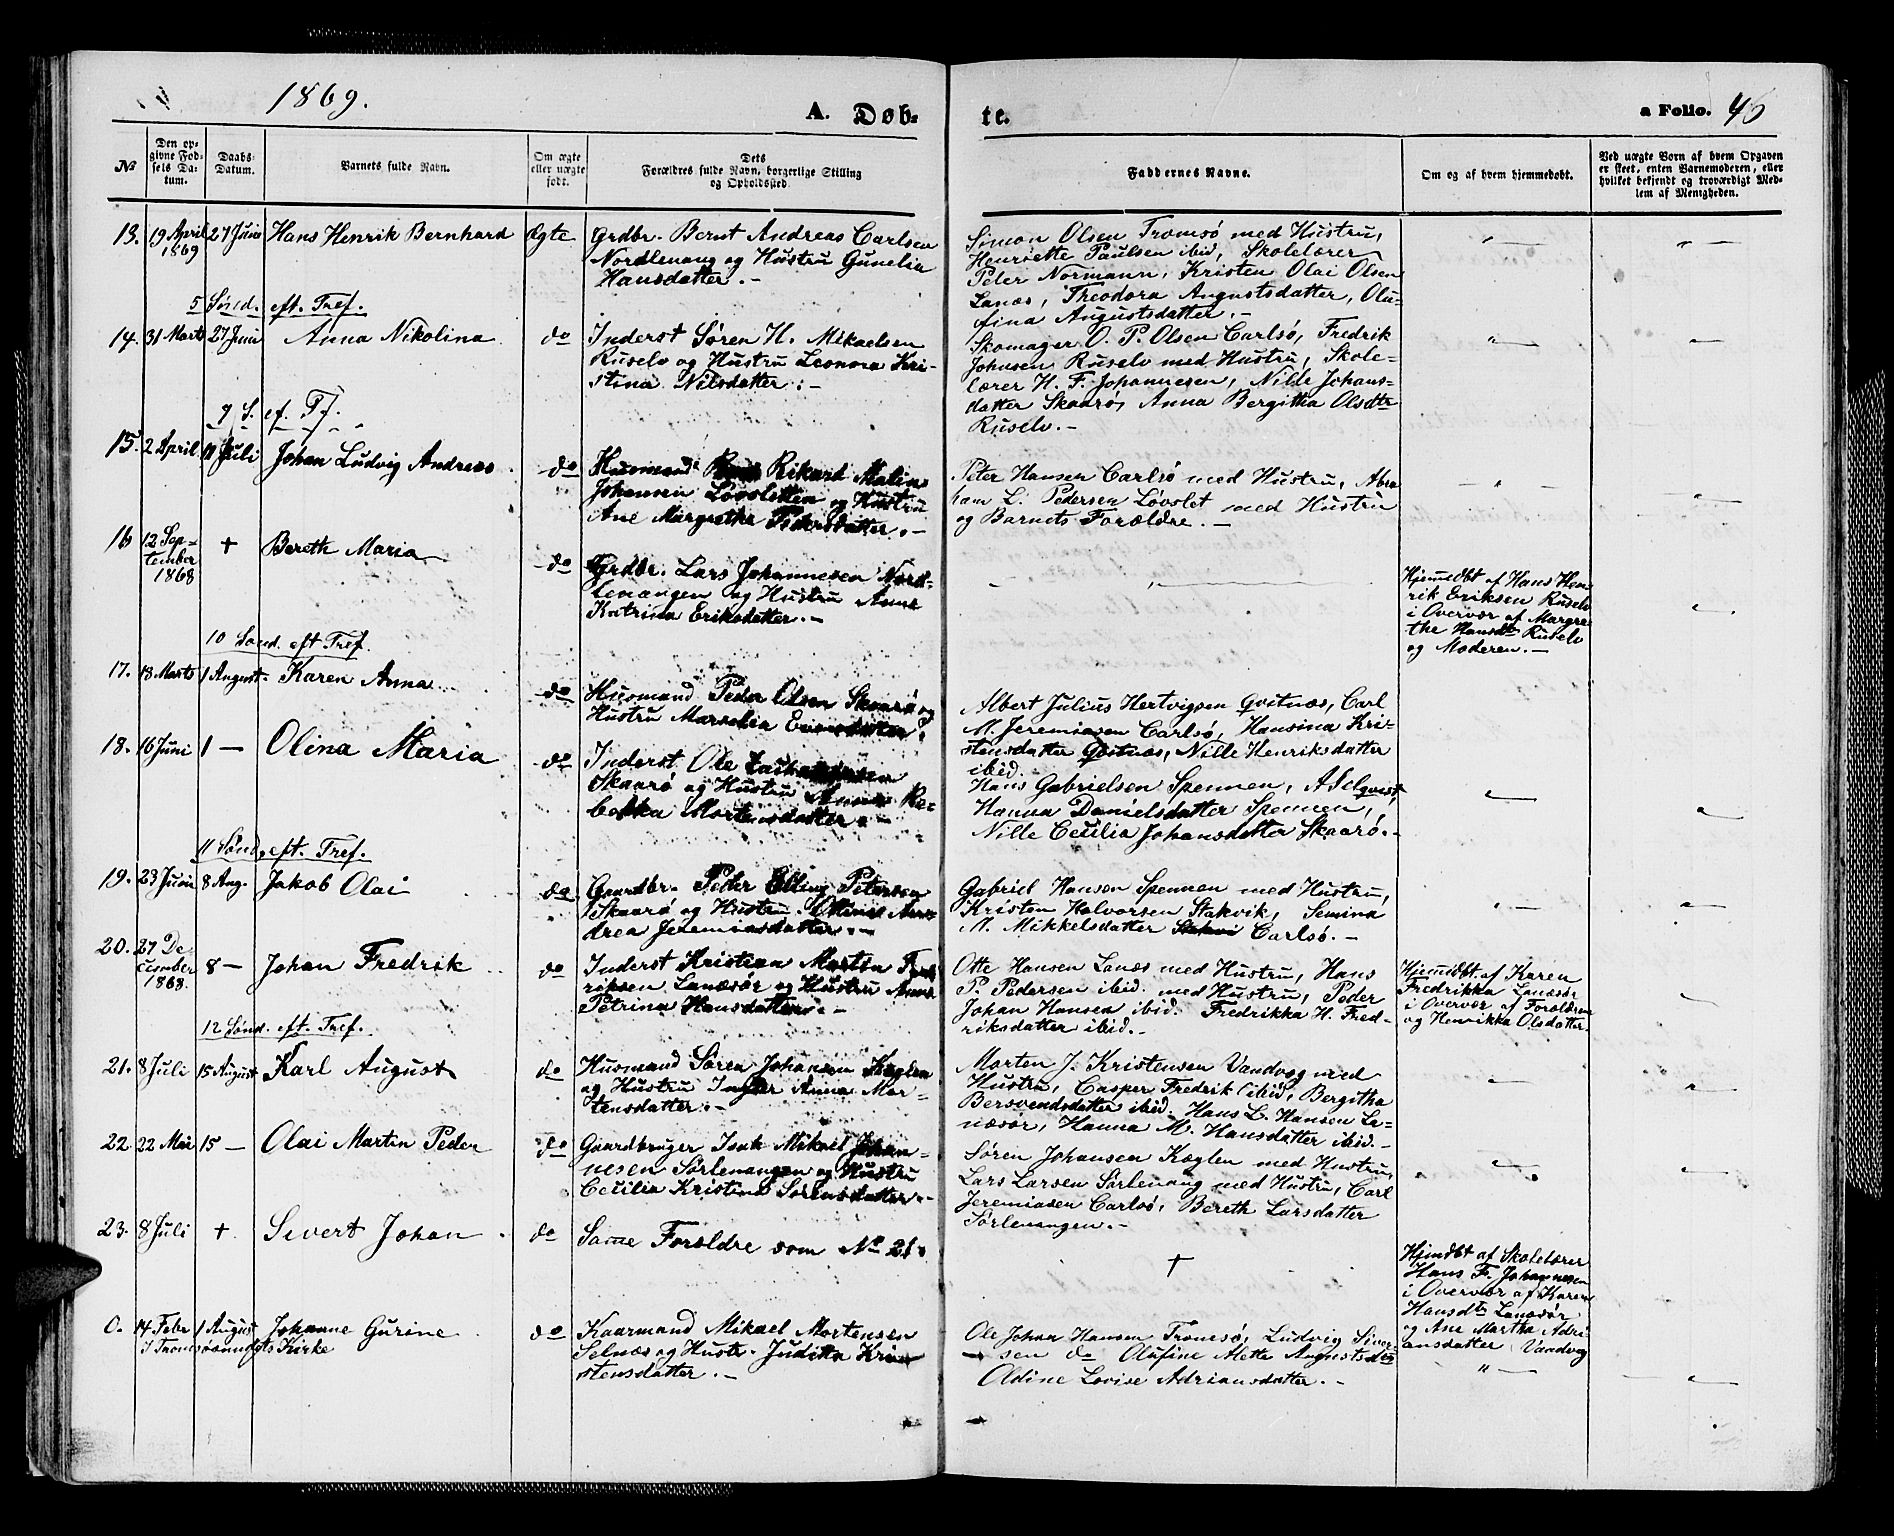 1869.
A. Døb-
te.
a Folio. 46
No
Den op-
givne Fød-
sels Da-
tum.
Daabs-
Datum.
Barnets fulde Navn.
Om ægte
eller uægte
født.
Dets
Forældres fulde Navn, borgerlige Stilling
og Opholdssted.
Faddernes Navne.
Om og af hvem hjemmedøbt.
Ved uægte Børn af hvem Opgaven
er skeet, enten Barnemoderen, eller
hvilket bekjendt og troværdigt Med-
lem af Menigheden.
13. 19 April 1869 27 Juni Hans Henrik Bernhard Ægte
Grdbr. Bernt Andreas Carlsen
Nordlenang og Hustru Gunelia
Hansdatter. -
Simon Olsen Tromsø med Hustru,
Henriette Paulsen ibid, Skolelærer
Peter Normann, Kristen Olai Olsen
Lanæs, Theodora Augustsdatter, Olu-
fina Augustsdatter. -
5 Sønd. eft. Tref.
14. 31 Marts 27 Juni Anna Nikolina do
Inderst Søren H. Mikaelsen
Ruselv og Hustru Leonora Kri-
stina Nilsdatter: -
Skomager O. P. Olsen Carlsø, Fredrik
Johnsen Ruselv med Hustru, Skole-
lærer H. F. Johannesen, Nille Johans-
datter Skaarø, Anna Bergitha Olsdtr
Ruselv. -
7 S. ef. Tf.
15. 2 April 11 Juli Johan Ludvig Andreas do
Husmand Rikard Malin
Johansen Løvsletten og Hustru
Ane Margrethe Pedersdatter. -
Peter Hansen Carlsø med Hustru, Abra
ham L. Pedersen Løvslet med Hustru
og Barnets Forældre. -
16 12 Sep-
tember
1868 + Bereth Maria do
Grdbr. Lars Johannesen Nord-
lenangen og Hustru Anne
Katrina Eriksdatter. -
Hjemdbt af Hans Hen-
rik Eriksen Ruselv
i Overvær af Margre-
the Hansdtr Ruselv
og Moderen. -
10 Sønd. eft Tref.
17. 18 Marts 1 August. Karen Anna do
Husmand Peder Olsen Skaarø og
Hustru Marselia
Albert Julius Hertvigsen Qvitnæs, Carl
M. Jeremiasen Carlsø, Hansina Kri-
stensdatter Qvitnæs, Nille Henriksdatter
ibid.
18. 16 Juni 1 — Olina Maria do
Inderst Ole
Skaarø og Hustru Anna Re-
bekka Mortensdatter. -
Hans Gabrielsen Spennen, A Selqvist,
Hanna Danielsdatter Spennen,
Nille Cecilia Johansdatter Skaarø. -
11 Sønd. eft. Tref.
19. 23 Juni 8 Aug. Jakob Olai do
Gaardbr. Peder Elling Petersen
Skaarø og Hustru Ottine An-
drea Jeremiasdatter. -
Gabriel Hansen Spennen med Hustru,
Kristen Halvorsen Stakvik, Semina
M. Mikkelsdatter Stakvi Carlsø. -
20. 27 De
cember
1868. 8 — Johan Fredrik do
Inderst Kristian Morten Fred-
riksen Lanæsør og Hustru Anne
Petrina Hansdatter. -
Otte Hansen Lanæs med Hustru, Hans
P. Pedersen ibid. med Hustru, Peder
Johan Hansen ibid. Fredrikka H. Fred-
riksdatter ibid. -
Hjemdbt. af Karen
Fredrikka Lanæsør
i Overvær af Forældrene
og Henrikka Olsdatter.
12 Sønd. eft. Tref.
21. 8 Juli 15 August Karl August do
Husmand Søren Johansen Kæglen
og Hustru Inger Anna Mor-
tensdatter. -
Morten J. Kristensen Vandvog med
Hustru, Casper Fredrik ibid, Bergitha
Bersvendsdatter ibid. Hans L. Hansen La-
næsør, Hanna M. Hansdatter ibid. -
22. 22 Mai 15 — Olai Martin Peder do
Gaardbruger Isak Mikael Johan-
nesen Sørlenangen og Hustru
Cecilia Kristina Sørensdatter. -
Søren Johansen Kæglen med Hustru,
Lars Larsen Sørlenang med Hustru, Carl
Jeremiasen Carlsø, Bereth Larsdatter
Sørlenangen. -
23. 8 Juli + Sivert Johan do
Same Forældre som No 21.
+
Hjmdbt af Skolelærer
Hans F. Johannesen
i Overvær af Karen
Hansdtr Lanæsør
og Ane Martha Adri-
ansdatter Vandvog
0. 14 Febr 1 August Johanne Gurine do
I Tromsøsundets Kirke
Kaarmand Mikael Mortensen
Selnæs og Hustr. Juditta Kri-
stensdatter. -
Ole Johan Hansen Tromsø, Ludvig Siver-
sen do Olufine Alette Augustsdtr
Oldine Lovise Adriansdatter. -